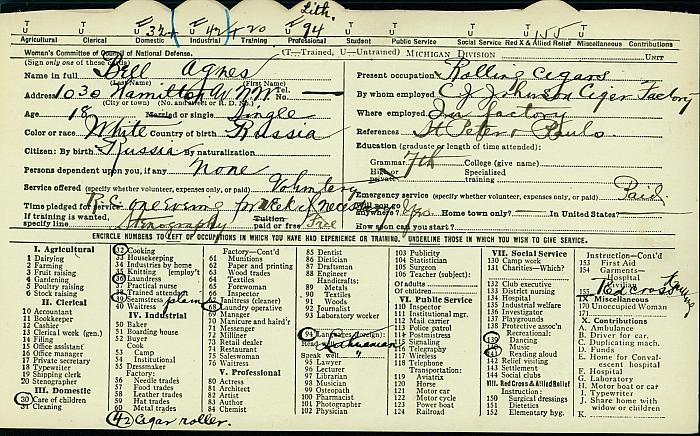 Lith.
U T U T U 32+ T U 42+ T 20 U 94 T U T U T U 155 T U T
Agricultural Clerical Domestic Industrial Training Professional Student Public Service Social Service Red X & Allied Relief Miscellaneous Contributions
Woman's Committee of Council of National Defense. (T—Trained, U—Untrained) MICHIGAN DIVISION UNIT
(Sign only one card)
Name in full Bill Agnes
(Last Name) (First Name)
Address 1030 Hamilton Av N.W. Tel. No. —
(City or town) (No. and street or R. D. No.)
Age 18 Married or single Single
Color or race White Country of birth Russia
Citizen: By birth Russia By naturalization
Persons dependent upon you, if any None
Service offered (specify whether volunteer, expenses only, or paid) Voluntary
Time pledged for service R.C. one evening pr week if necess
If training is wanted, specify line Stenography Tuition paid or free Free
Present occupation Rolling Cigars
By whom employed G J Johnson Cigar Factory
Where employed In factory
References St Peter & Pauls.
Education (graduate or length of time attended):
Grammar 7th College (give name)
High or private Specialized training
Emergency service (specify whether volunteer, expenses only, or paid) Paid.
Will you go anywhere? Yes Home town only? — In United States? —
How soon can you start?
ENCIRCLE NUMBERS TO LEFT OF OCCUPATIONS IN WHICH YOU HAVE HAD EXPERIENCE OR TRAINING, UNDERLINE THOSE IN WHICH YOU WISH TO GIVE SERVICE.
I. Agricultural
1 Dairying
2 Farming
3 Fruit raising
4 Gardening
5 Poultry raising
6 Stock raising
II. Clerical
10 Accountant
11 Bookkeeper
12 Cashier
13 Clerical work (gen.)
14 Filing
15 Office assistant
16 Office manager
17 Private secretary
18 Typewriter
19 Shipping clerk
20 Stenographer
III. Domestic
30 Care of children
31 Cleaning
32 Cooking
33 Housekeeping
34 Industries by home
35 Knitting (employ't
36 Laundress
37 Practical nurse
38 Trained attendant
39 Seamstress plain
40 Waitress
IV. Industrial
50 Baker
51 Boarding house
52 Buyer
Cook
53 Camp
54 Institutional
55 Dressmaker
Factory:
56 Needle trades
57 Food trades
58 Leather trades
59 Hat trades
60 Metal trades
42 Cigar roller.
Factory—Cont'd
61 Munitions
62 Paper and printing
63 Wood trades
64 Textiles
65 Forewoman
66 Inspector
67 Janitress (cleaner)
68 Laundry operative
69 Manager
70 Manicure and haird'r
71 Messenger
72 Milliner
73 Retail dealer
74 Restaurant
75 Saleswoman
76 Waitress
V. Professional
80 Actress
81 Architect
82 Artist
83 Author
84 Chemist
85 Dentist
86 Dietician
87 Draftsman
88 Engineer
Handicrafts:
89 Metals
90 Textiles
91 Woods
92 Journalist
93 Library worker
94 Languages (foreign):
Read Lithuanian
Speak well "
95 Lawyer
96 Lecturer
97 Librarian
98 Musician
99 Osteopath
100 Pharmacist
101 Photographer
102 Physician
103 Publicity
104 Statistician
105 Surgeon
106 Teacher (subject):
Of adults
Of children
VI. Public Service
110 Inspector
111 Institutional mgr.
112 Mail carrier
113 Police patrol
114 Postmistress
115 Signaling
116 Telegraphy
117 Wireless
118 Telephone
Transportation:
119 Aviatrix
120 Horse
121 Motor car
122 Motor cycle
123 Power boat
124 Railroad
VII. Social Service
130 Camp work
131 Charities—Which?
132 Club executive
133 District nursing
134 Hospital
135 Industrial welfare
136 Investigator
137 Playgrounds
138 Protective assoc'n
Recreational:
139 Dancing
140 Music
141 Reading aloud
142 Relief visiting
143 Settlement
144 Social clubs
VIII. Red Cross & Allied Relief
Instruction:
150 Surgical dressings
151 Dietetics
152 Elementary hyg.
Instruction—Cont'd
153 First Aid
154 Garments—
Hospital
Civilian
155 Red Cross
IX Miscellaneous
170 Unoccupied Woman
171
X. Contributions
A. Ambulance
B. Driver for car.
C. Duplicating mach.
D. Funds
E. Home for Convalescent hospital
F. Hospital
G. Laboratory
H. Motor boat or car
I. Typewriter
J. Share home with widow or children
K.